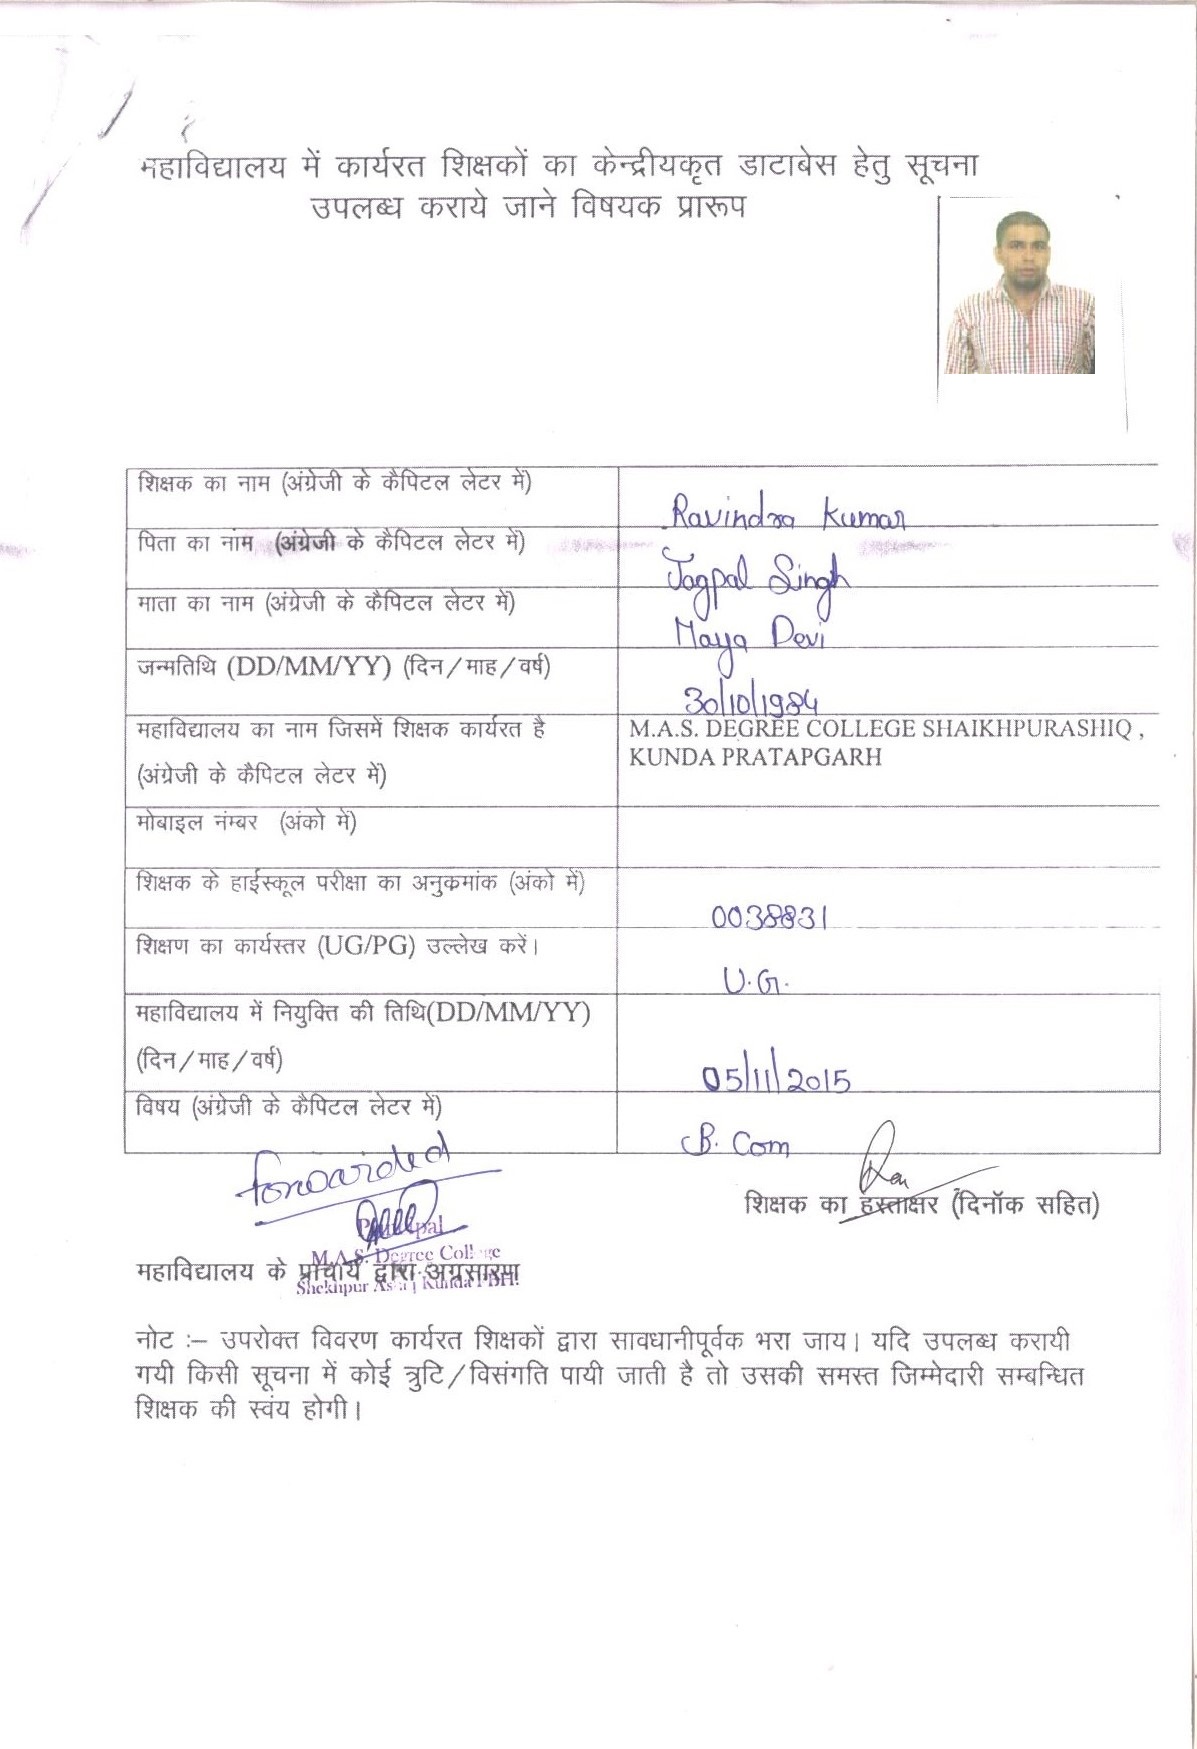 महाविद्यालय में कार्यरत शिक्षकों का केन्द्रीयकृत डाटाबेस हेतु सूचना
उपलब्ध कराये जाने विषयक प्रारूप
शिक्षक का नाम (अंग्रेजी के कैपिटल लेटर में)
Ravindra Kumar
पिता का नांम (अंग्रेजी के कैपिटल लेटर में)
Jagpal Singh
माता का नाम (अंग्रेजी के कैपिटल लेटर में)
Maya Devi
जन्मतिथि (DD/MM/YY) (दिन/माह/वर्ष)
30/10/1984
महाविद्यालय का नाम जिसमें शिक्षक कार्यरत है
(अंग्रेजी के कैपिटल लेटर में)
M.A.S. DEGREE COLLEGE SHAIKHPURASHIQ ,
KUNDA PRATAPGARH
मोबाइल नंम्बर (अंको में)
शिक्षक के हाईस्कूल परीक्षा का अनुक्रमांक (अंको में)
0038831
शिक्षण का कार्यस्तर (UG/PG) उल्लेख करें।
U.G.
महाविद्यालय में नियुक्ति की तिथि(DD/MM/YY)
(दिन/माह/वर्ष)
05/11/2015
विषय (अंग्रेजी के कैपिटल लेटर में)
B. Com
forwarded
शिक्षक का हस्ताक्षर (दिनॉक सहित)
Principal
M.A.S. Degree College
महाविद्यालय के प्राचार्य द्वारा अग्रसारण
Shekhpur Kunda PBH.
नोट :– उपरोक्त विवरण कार्यरत शिक्षकों द्वारा सावधानीपूर्वक भरा जाय। यदि उपलब्ध करायी
गयी किसी सूचना में कोई त्रुटि/विसंगति पायी जाती है तो उसकी समस्त जिम्मेदारी सम्बन्धित
शिक्षक की स्वंय होगी।